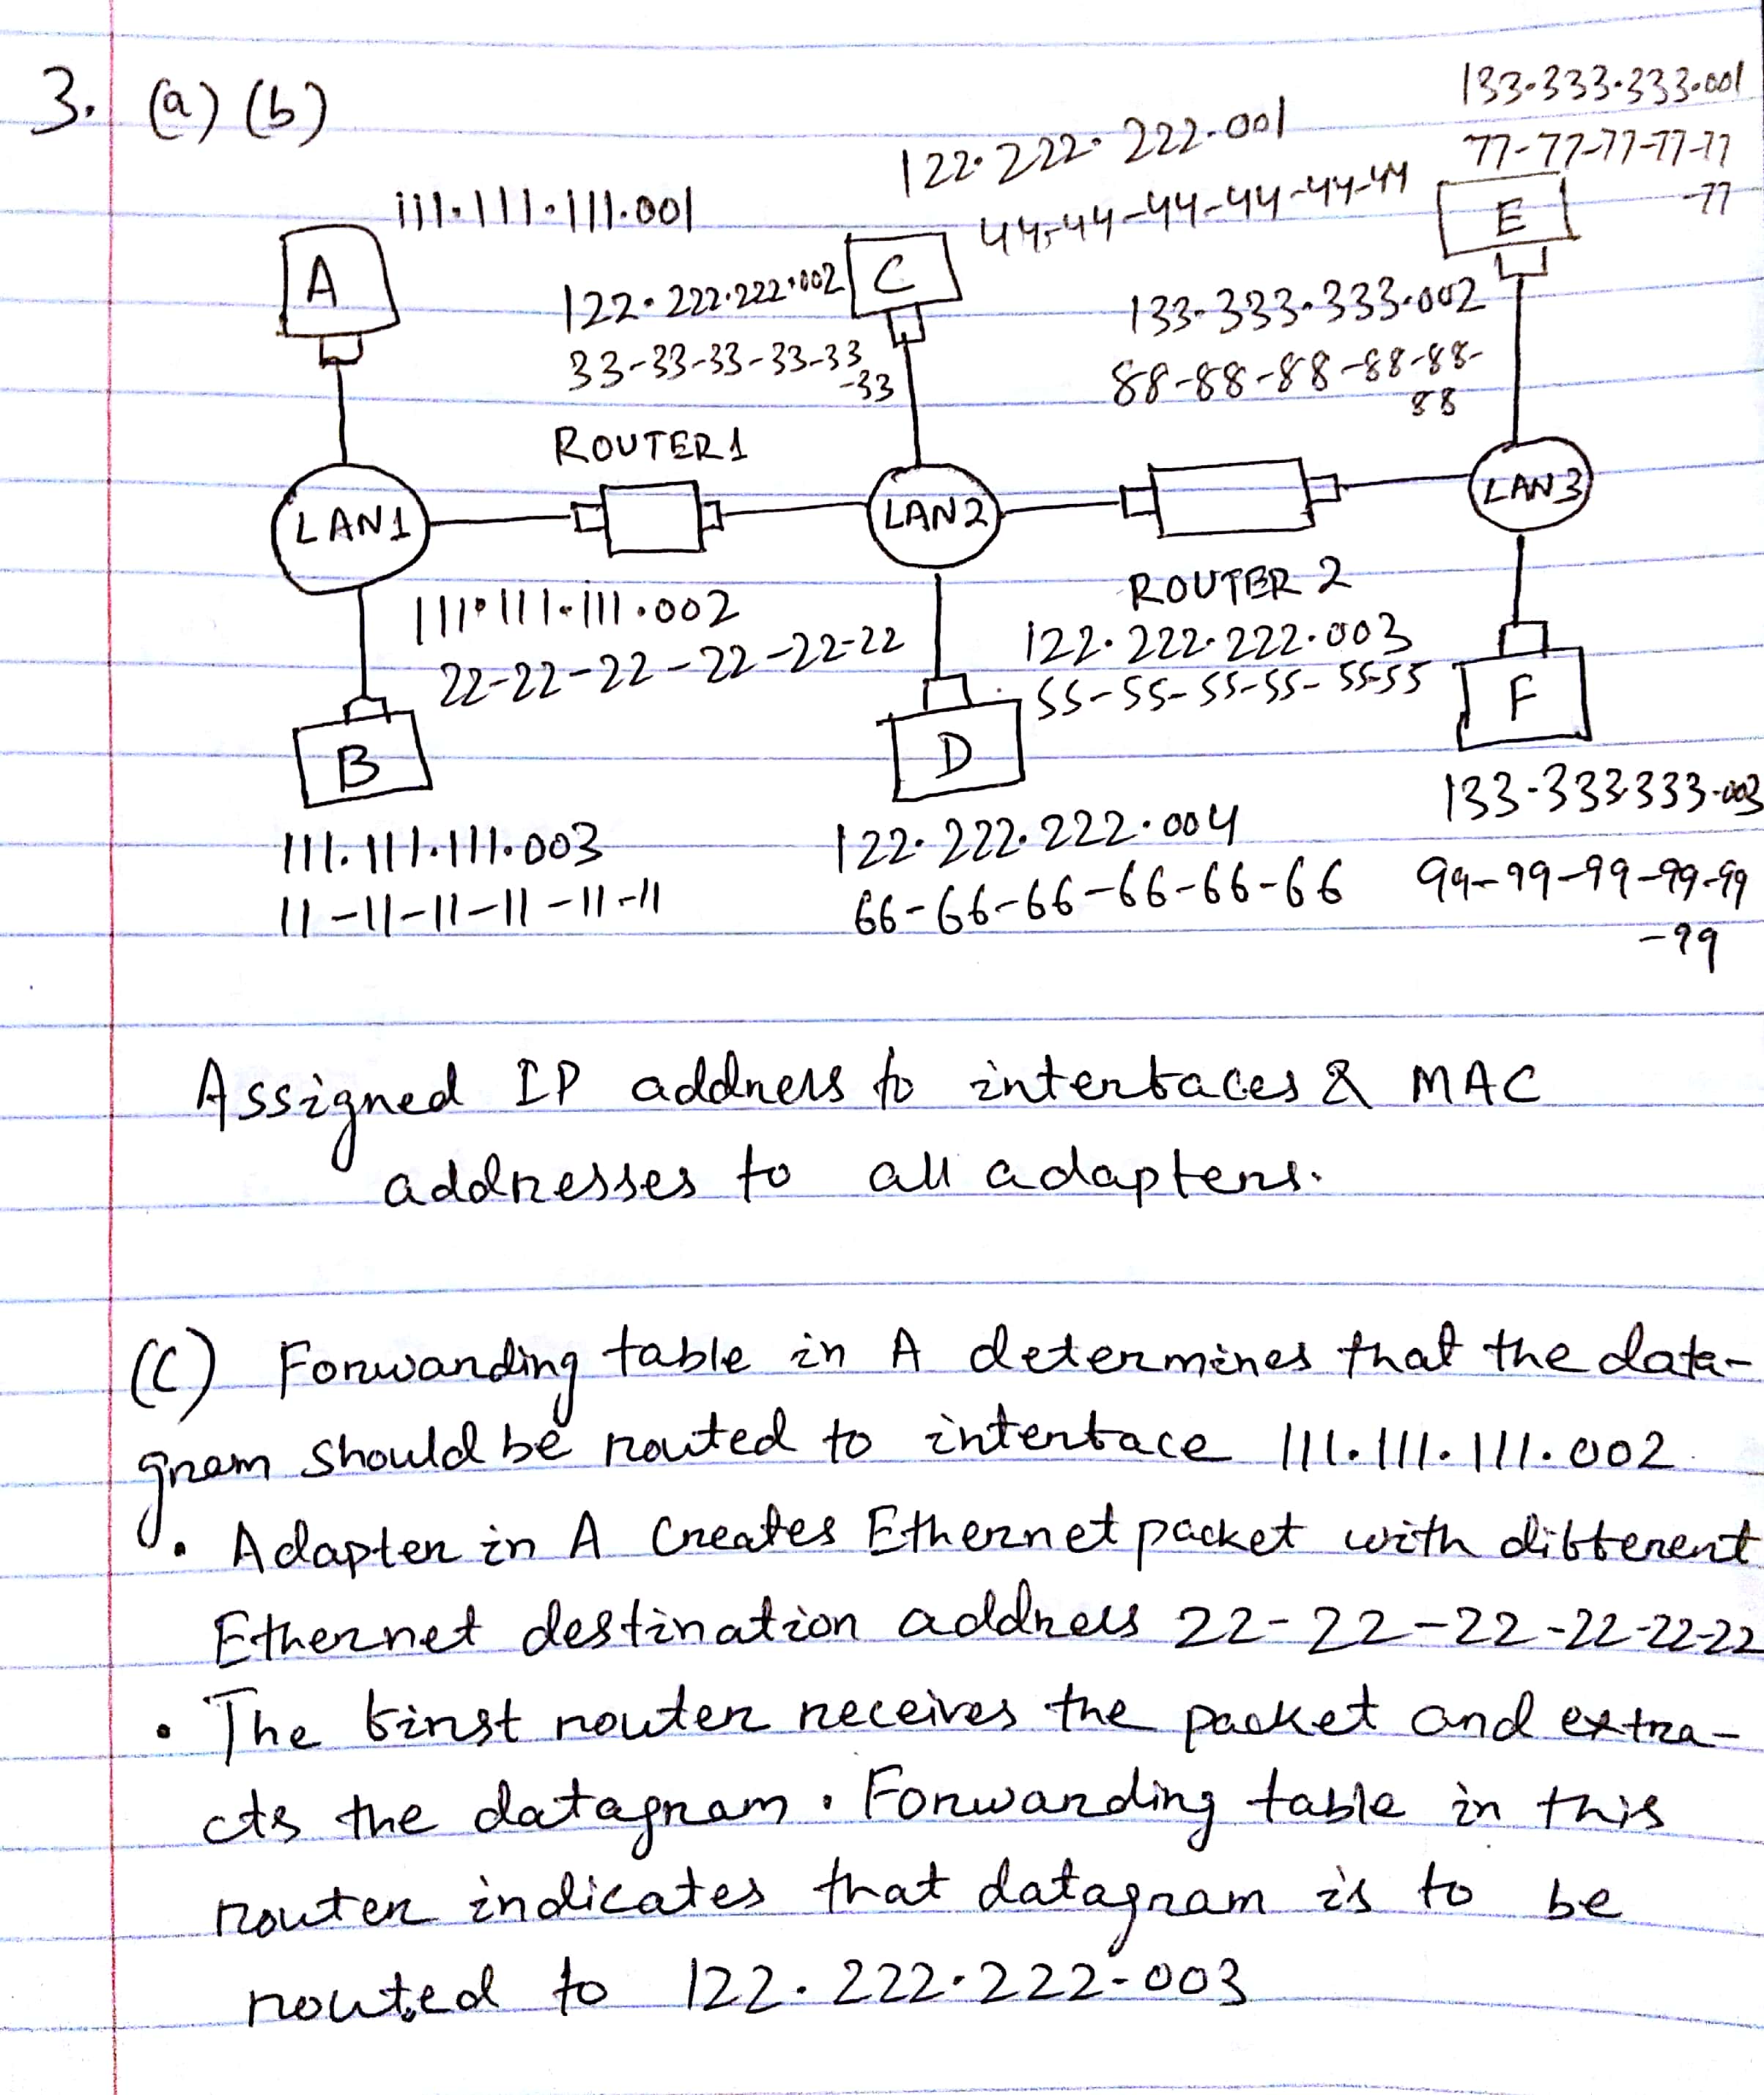 3. (a) (b)
133.333.333.001
77-77-77-77-77
-77
122.222.222.001
44-44-44-44-44-44
111.111.111.001
A
C
E
122.222.222.002
33-33-33-33-33
-33
133.333.333.002
88-88-88-88-88-
88
ROUTER1
LAN1
LAN2
LAN3
ROUTER 2
111.111.111.002
22-22-22-22-22-22
122.222.222.003
55-55-55-55-55-55
B
D
F
111.111.111.003
11-11-11-11-11-11
122.222.222.004
66-66-66-66-66-66
133.333.333.003
99-99-99-99-99
-99
Assigned IP address to interfaces & MAC
addresses to all adapters.
(C) Forwarding table in A determines that the data-
gram should be routed to interface 111.111.111.002
• Adapter in A Creates Ethernet packet with different
Ethernet destination address 22-22-22-22-22-22
• The first router receives the packet and extra-
cts the datagram. Forwarding table in this
router indicates that datagram is to be
routed to 122.222.222.003